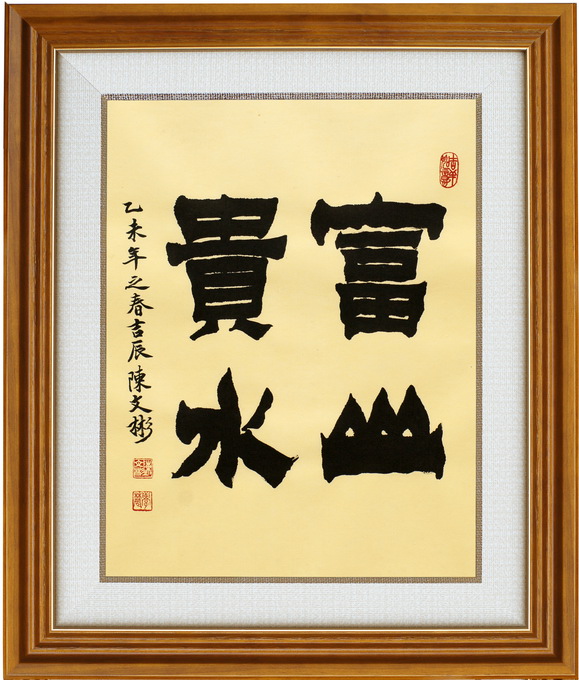 富山
貴水
乙未年之春吉辰陳文彬